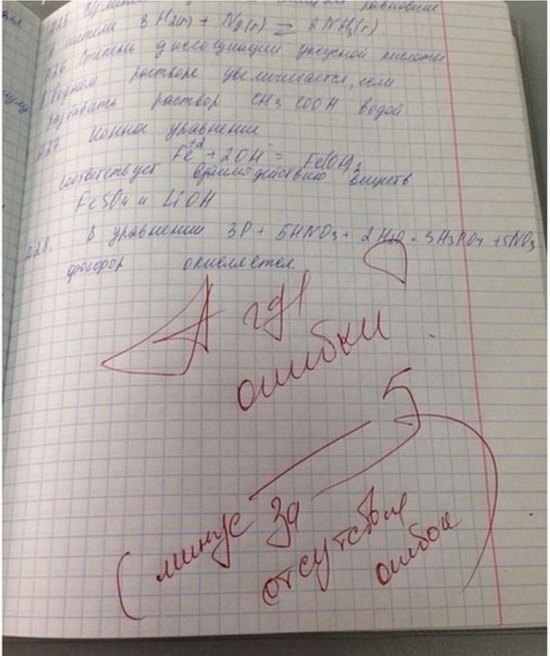 равновесие
в системе 3H2(г) + N2(г) ⇄ 2NH3(г).
A26. Степень диссоциации уксусной кислоты
в водном растворе увеличивается, если
разбавить раствор CH3COOH водой
A27. Ионное уравнение
Fe+2 + 2OH- = Fe(OH)2
соответствует взаимодействию веществ
FeSO4 и LiOH
A28. В уравнении 3P + 5HNO3 + 2H2O = 3H3PO4 + 5NO
фосфор окисляется
А где
ошибки
5-
(минус за
отсутствие
ошибок